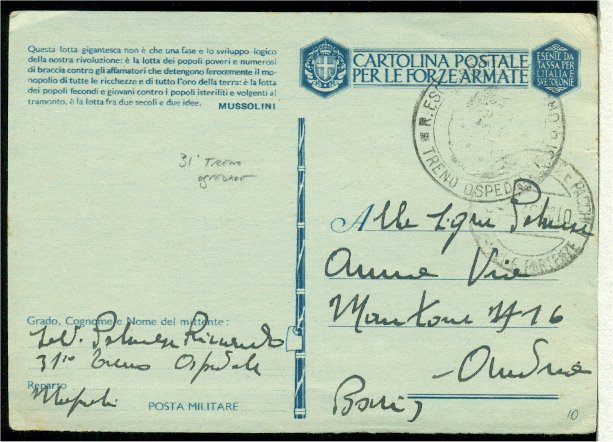 Questa lotta gigantesca non è che una fase e lo sviluppo logico
della nostra rivoluzione: è la lotta dei popoli poveri e numerosi
di braccia contro gli affamatori che detengono ferocemente il mo-
nopolio di tutte le ricchezze e di tutto l'oro della terra: è la lotta
dei popoli fecondi e giovani contro i popoli isteriliti e volgenti al
tramonto, è la lotta fra due secoli e due idee.
MUSSOLINI
CARTOLINA POSTALE
PER LE FORZE ARMATE
ESENTE DA
TASSA PER
L'ITALIA E
SVE COLONIE
TRENO OSPEDA
31° TRENO
OSPEDALE
Alla Sign. Palumbo
Anna Via
Mantone N 16
Andria
Bari
Grado, Cognome e Nome dei mittente:
Sold. Palumbo Riccardo
31mo treno Ospedale
Reparto
Napoli
POSTA MILITARE
10